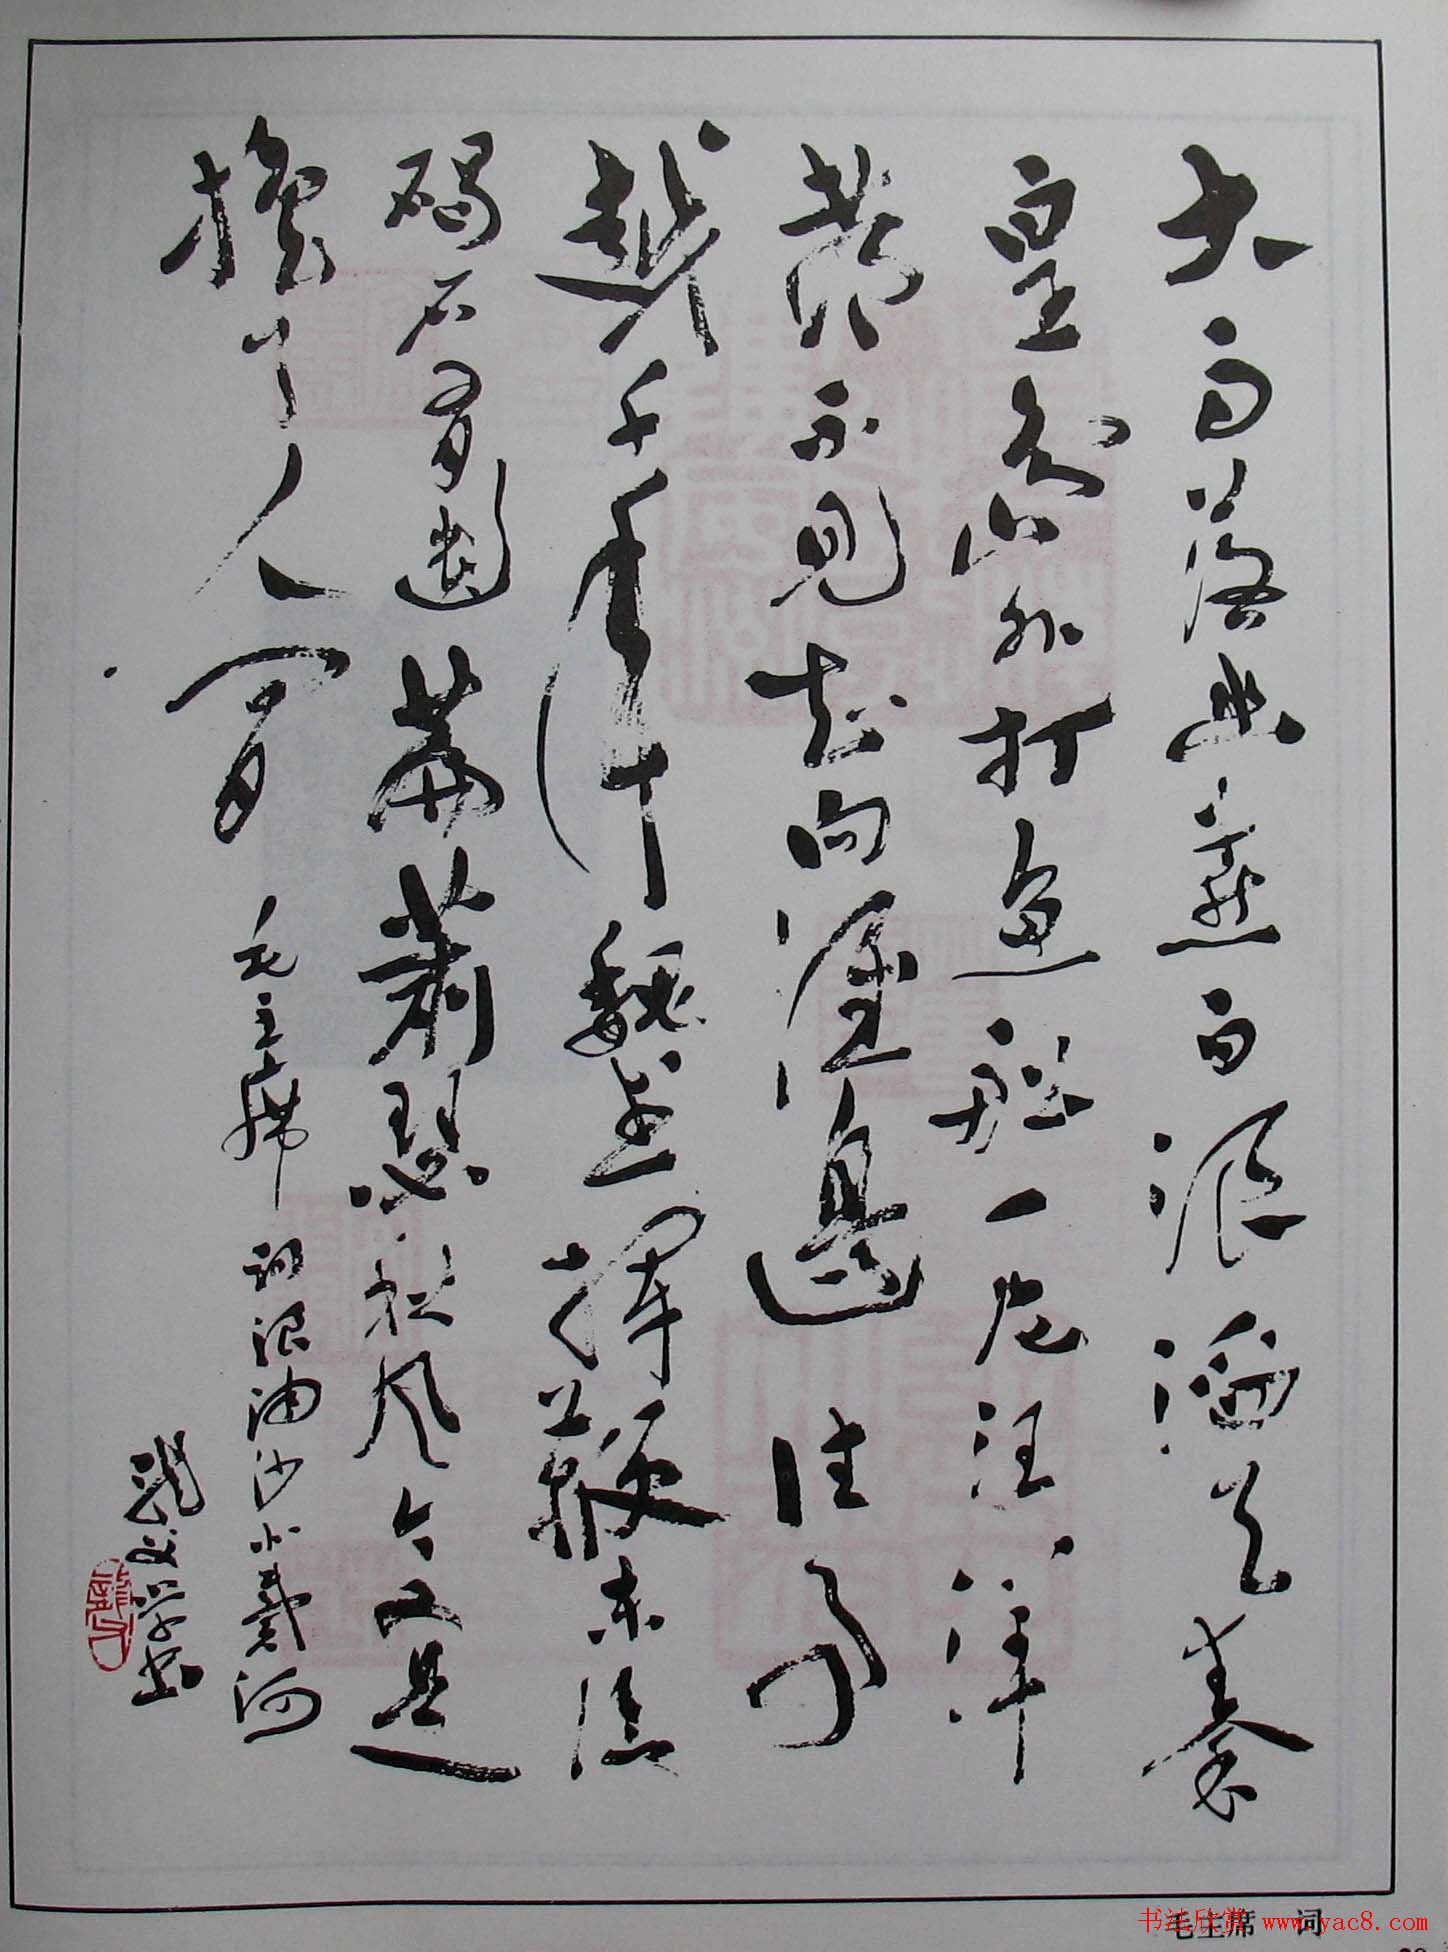 大雨落幽燕白浪滔天秦
皇岛外打鱼船一片汪洋
都不見知向谁邊往事
越千年魏武揮鞭东临
碣石有遗篇蕭瑟秋风今又是
換了人间 毛主席 词浪淘沙北戴河
龙文学书
毛主席 词
书法欣赏 www.yac8.com